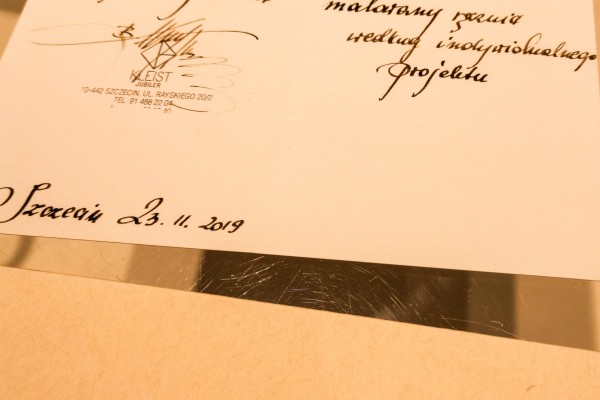 malarany ręcznie
według indywidualnego
projektu
KLEIST
JUBILER
70-442 SZCZECIN, UL. RAYSKIEGO 20/2
TEL. 91 488 22 04
Szczecin 23.11.2019